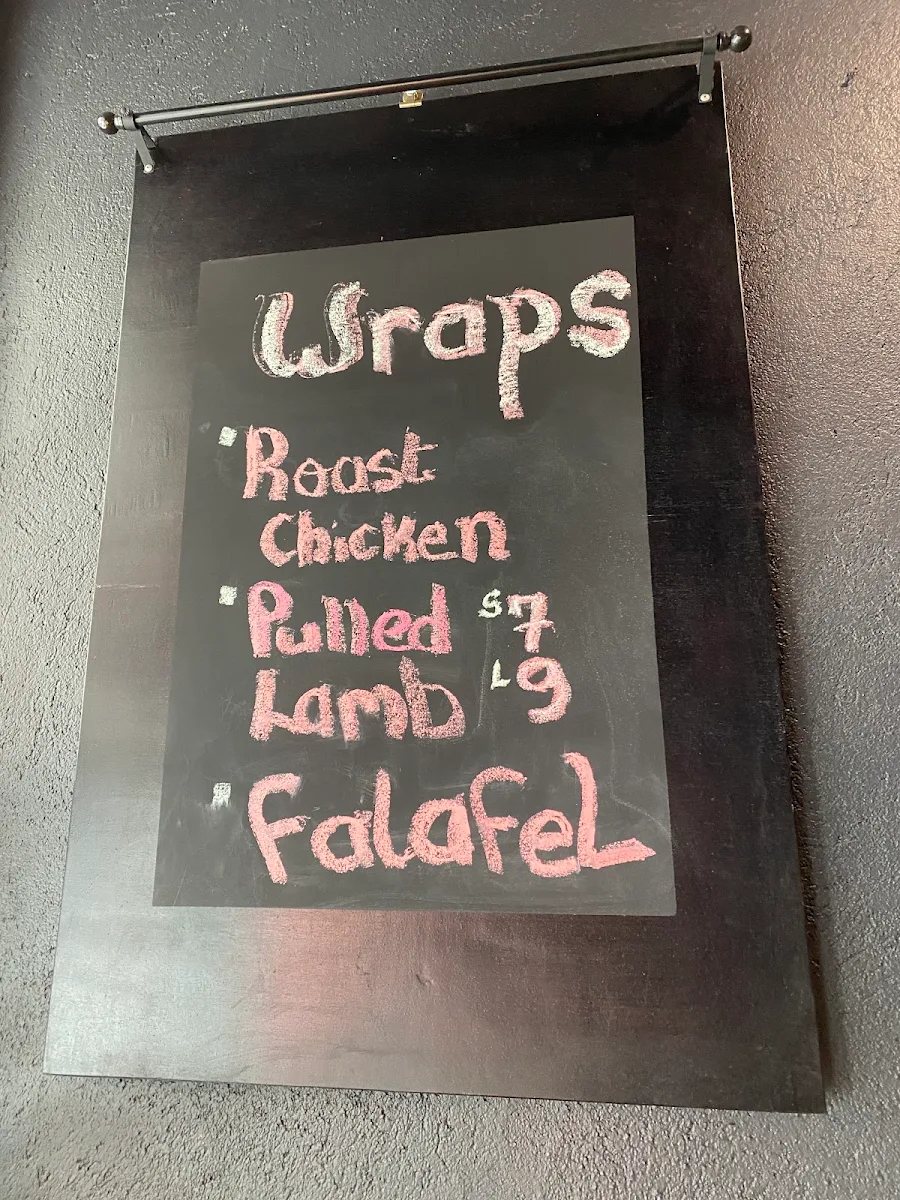 Wraps
Roast
Chicken
Pulled S 7
Lamb L 9
Falafel